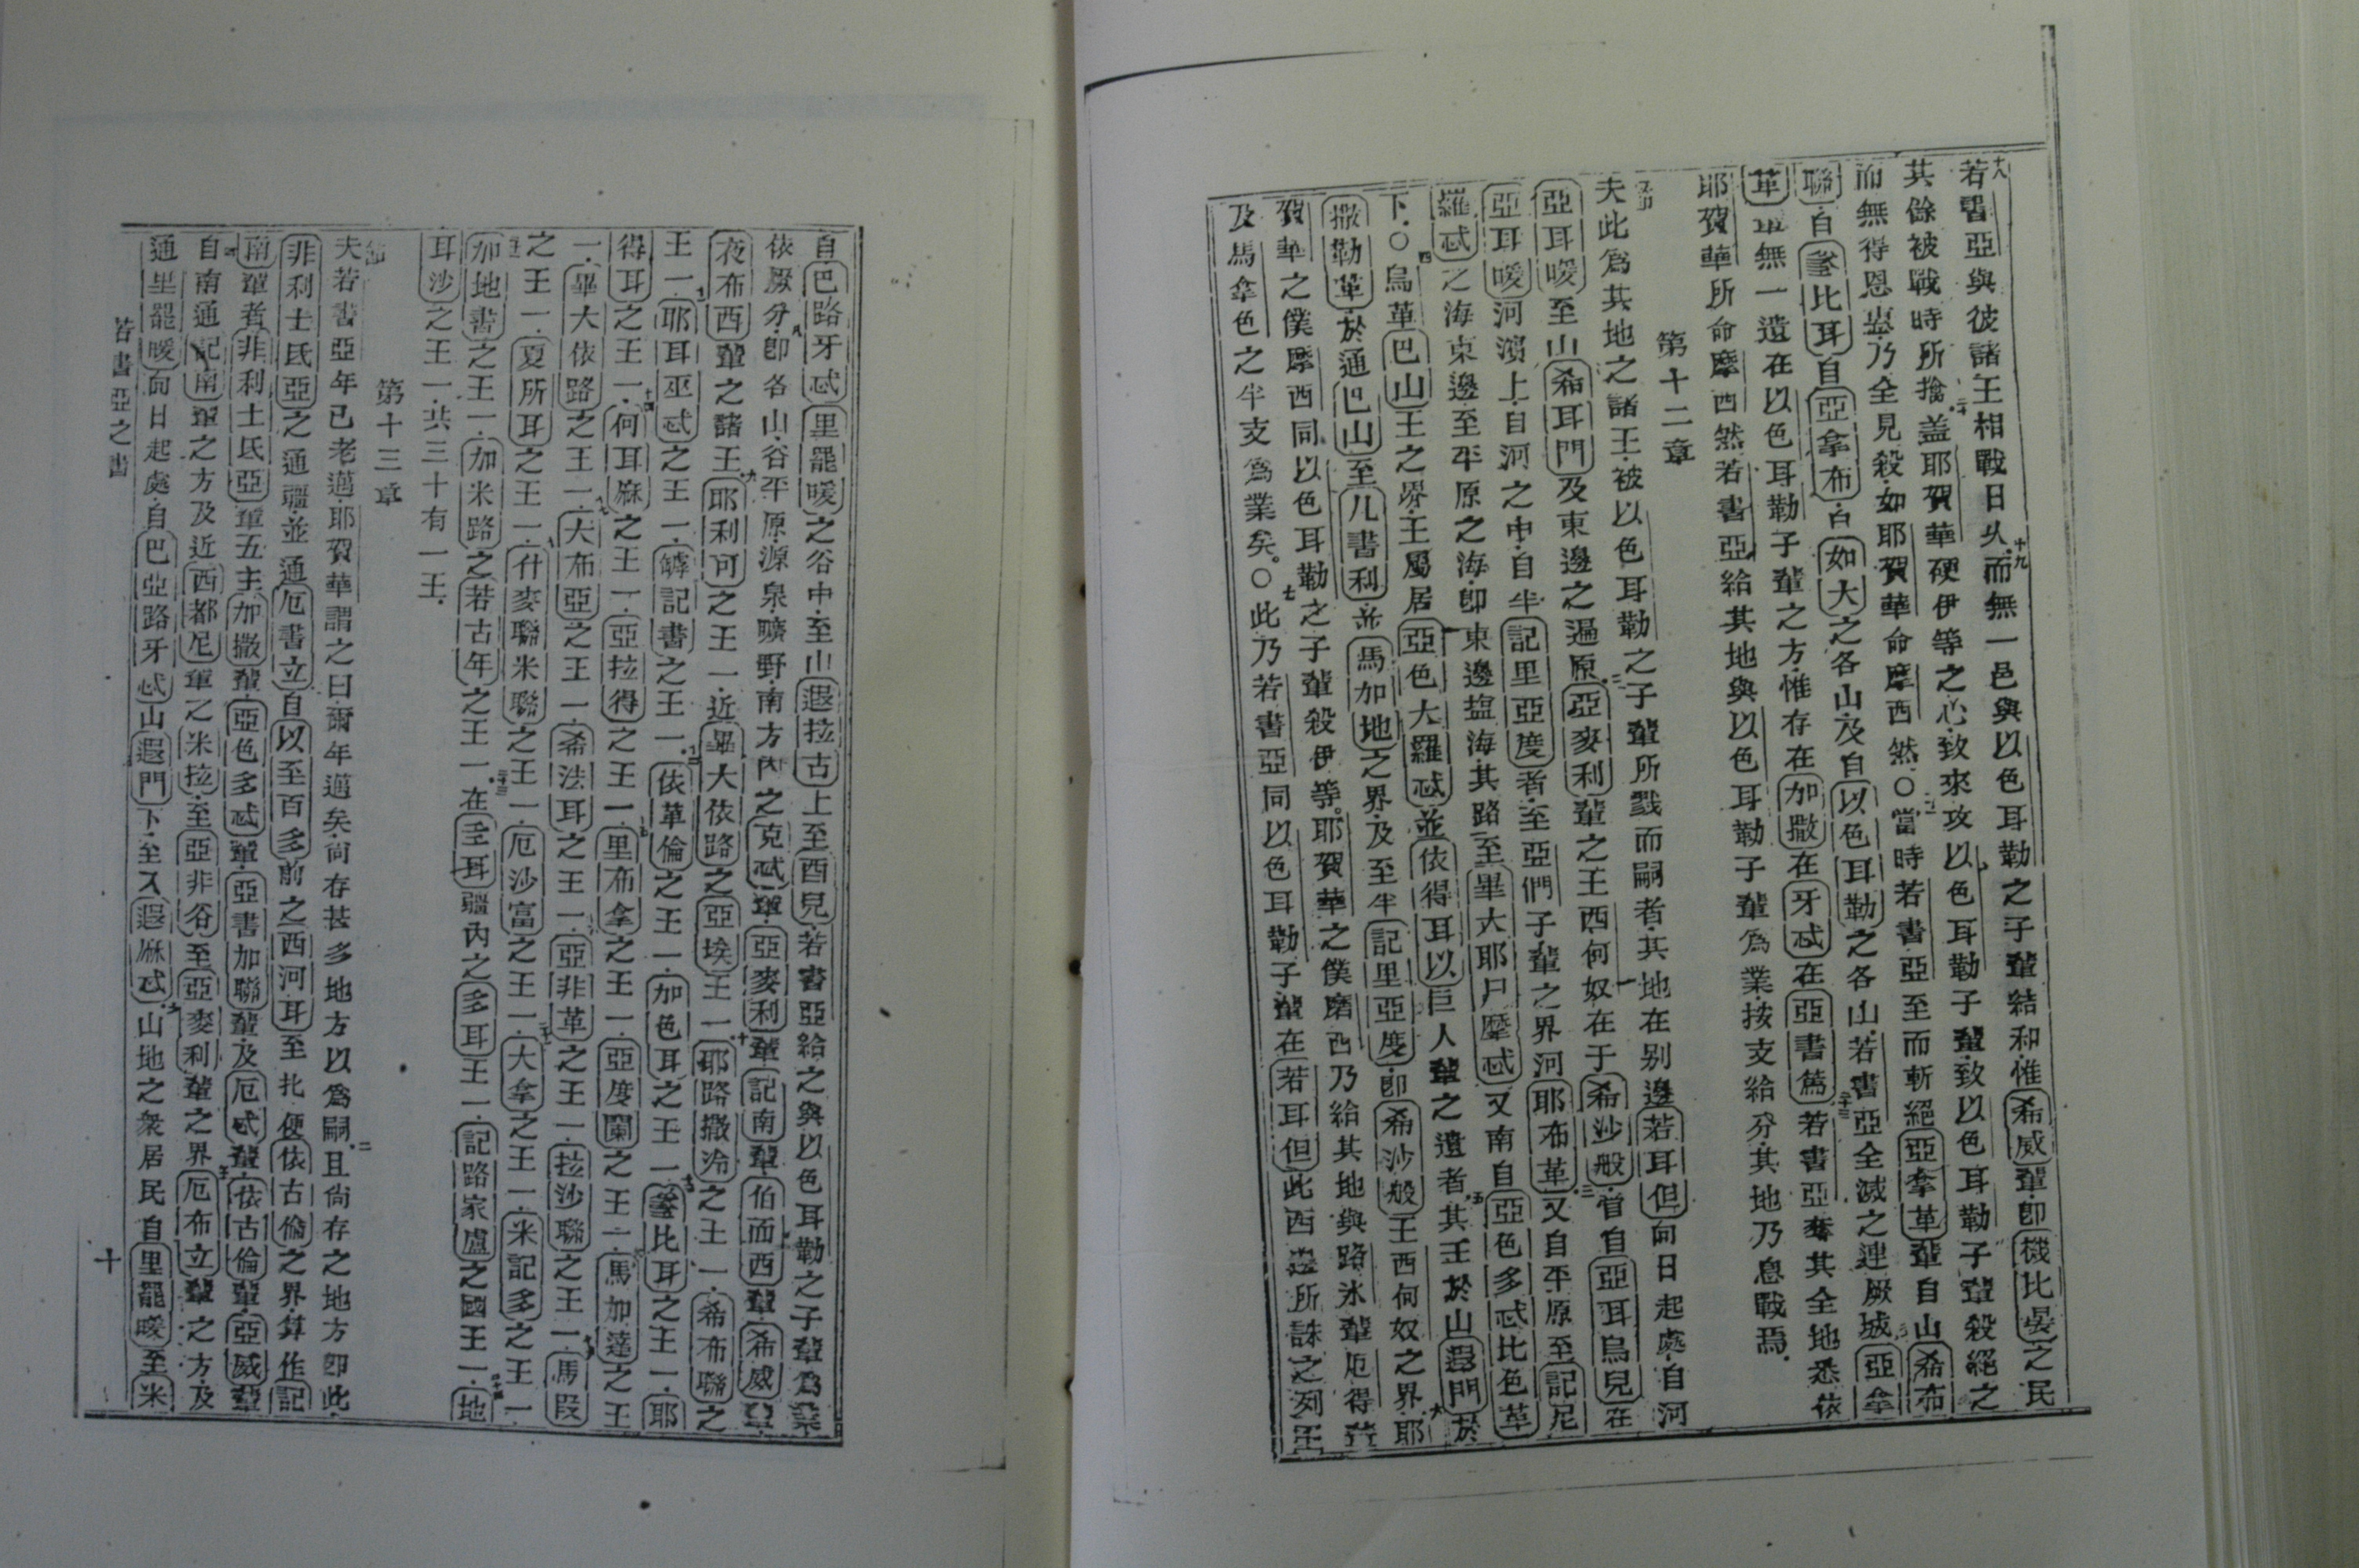 若書亞與彼諸王相戰日久而無一邑與以色耳勒之子輩結和惟希威輩即機比晏之民
其餘被戰時所擒盖耶賀華硬伊等之心致來攻以色耳勒子輩致以色耳勒子輩殺絕之
而無得恩盡乃全見殺如耶賀華命摩西然○當時若書亞至而斬絕亞拿革輩自山希布
聯自比耳自亞拿布自如大之各山及自以色耳勒之各山若書亞全滅之連厥城亞拿
革輩無一遺在以色耳勒子輩之方惟存在加撒在牙忒在亞書篤若書亞奪其全地悉依
耶賀華所命摩西然若書亞給其地與以色耳勒子輩為業按支給分其地乃息戰焉
第十二章
夫此為其地之諸王被以色耳勒之子輩所戮而嗣者其地在別邊若耳但向日起處自河
亞耳嗳至山希耳門及東邊之遍原亞麥利輩之王西何奴在于希沙般管自亞耳烏兒在
亞耳嗳河濱上自河之中自半記里亞度者至亞們子輩之界河耶布革又自平原至記尼
羅忒之海東邊至平原之海即東邊塩海其路至畢大耶尸摩忒又南自亞色多忒比色革
下○烏革巴山王之界王屬居亞色大羅忒並依得耳以巨人輩之遺者其王於山遐門於
撒勒革於通巴山至儿書利並馬加地之界及至半記里亞度即希沙般王西何奴之界耶
賀華之僕摩西同以色耳勒之子輩殺伊等耶賀華之僕摩西乃給其地與路氷輩厄得輩
及馬拿色之半支為業矣○此乃若書亞同以色耳勒子輩在若耳但此西邊所誅之列王
自巴路牙忒里罷嗳之谷中至山遐拉古上至西兒若書亞給之與以色耳勒之子輩為業
依厥分即各山谷平原源泉曠野南方內之克忒輩亞麥利輩記南輩伯而西輩希威輩
夜布西輩之諸王耶利可之王一近畢大依路之亞埃王一耶路撒冷之王一希布聯之
王一耶耳巫忒之王一記書之王一依革倫之王一加色耳之王一比耳之王一耶
得耳之王一何耳麻之王一亞拉得之王一里布拿之王一亞度闌之王一馬加達之王
一畢大依路之王一大布亞之王一希法耳之王一亞非革之王一拉沙聯之王一馬段
之王一夏所耳之王一什麥聯米聯之王一厄沙富之王一大拿之王一米記多之王一
加地書之王一加米路之若古年之王一在耳疆內之多耳王一記路家盧之國王一地
耳沙之王一共三十有一王
第十三章
夫若書亞年已老邁耶賀華謂之曰爾年邁矣尚存甚多地方以為嗣且尚存之地方即此
非利士氐亞之通疆並通厄書立自以至百多前之西河耳至北便依古倫之界算作記
南輩者非利士氐亞輩五主加撒輩亞色多忒輩亞書加聯輩及厄忒輩依古倫輩亞威輩
自南通記南輩之方及近西都尼輩之米拉至亞非谷至亞麥利輩之界厄布立輩之方及
通里罷嗳向日起處自巴亞路牙忒山遐門下至入遐麻忒山地之衆居民自里罷嗳至米
若書亞之書
十